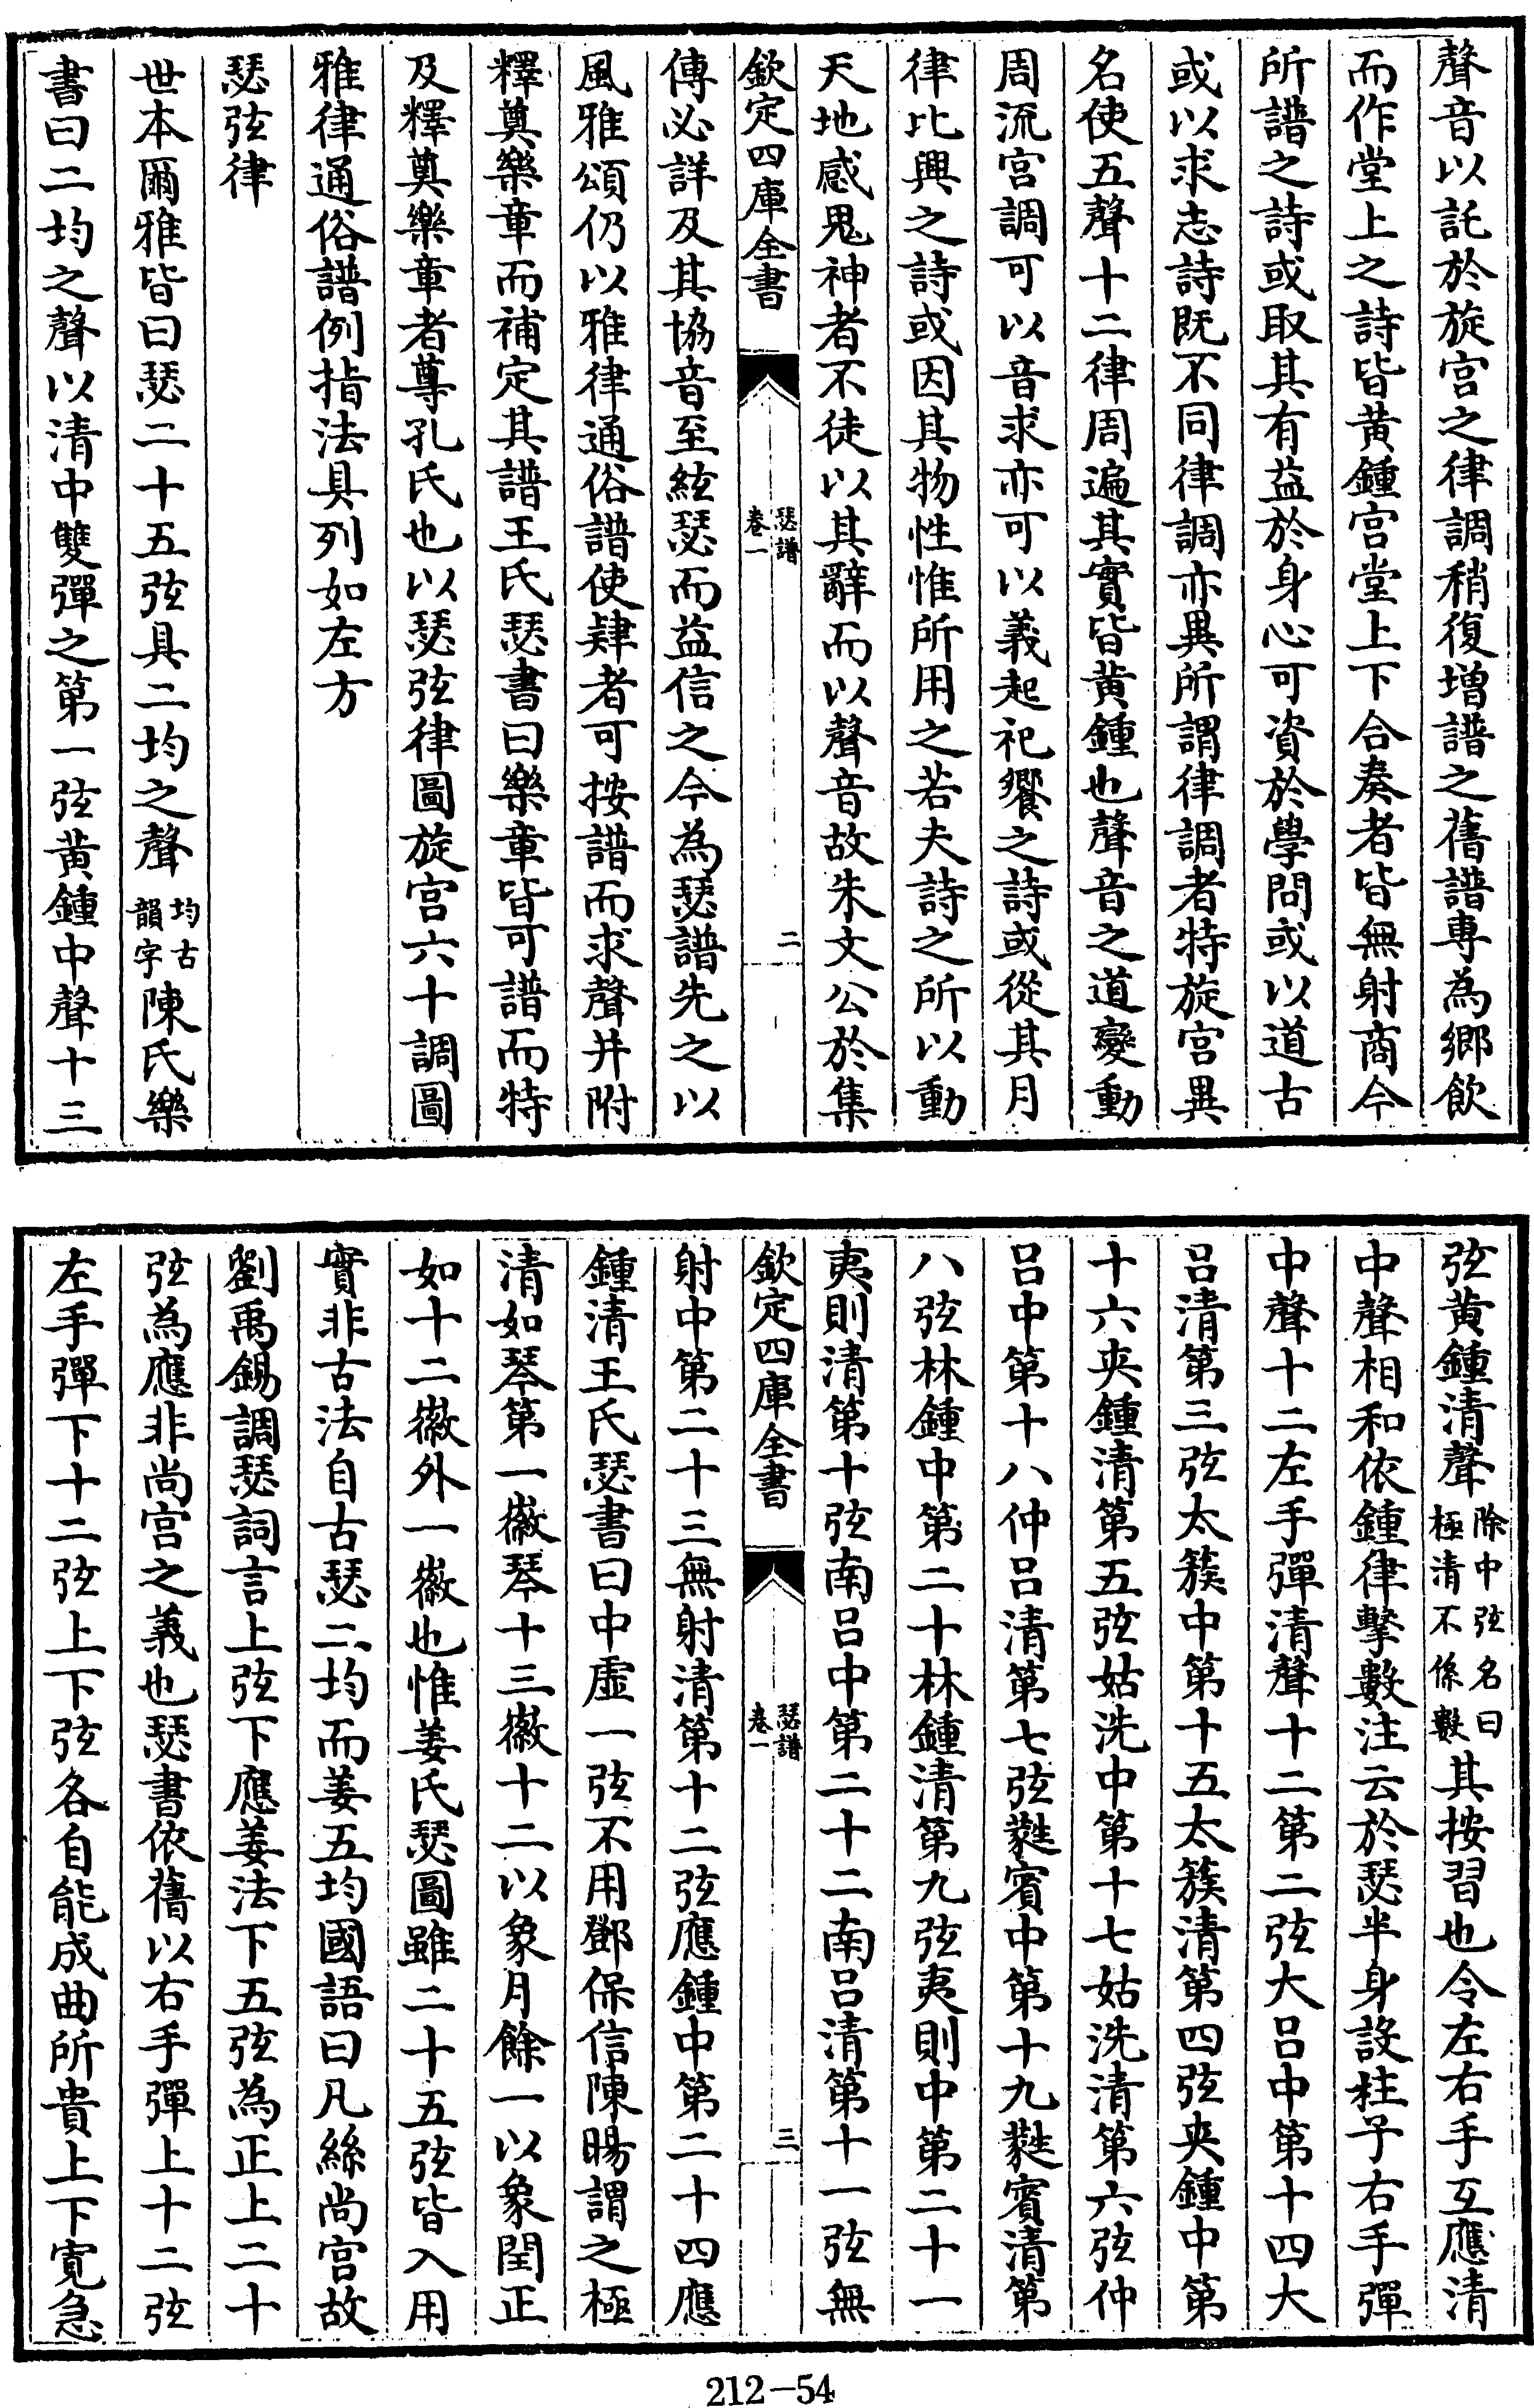 聲音以託於旋宫之律調稍復增譜之舊譜專為鄉飲
而作堂上之詩皆黄鍾宫堂上下合奏者皆無射商今
所譜之詩或取其有益於身心可資於學問或以道古
或以求志詩既不同律調亦異所謂律調者特旋宫異
名使五聲十二律周遍其實皆黄鍾也聲音之道變動
周流宫調可以音求亦可以義起祀饗之詩或從其月
律比興之詩或因其物性惟所用之若夫詩之所以動
天地感鬼神者不徒以其辭而以聲音故朱文公於集
欽定四庫全書
瑟譜
卷一
二
傳必詳及其協音至絃瑟而益信之今為瑟譜先之以
風雅頌仍以雅律通俗譜使肄者可按譜而求聲并附
釋奠樂章而補定其譜王氏瑟書曰樂章皆可譜而特
及釋奠樂章者尊孔氏也以瑟弦律圖旋宫六十調圖
雅律通俗譜例指法具列如左方
瑟弦律
世本爾雅皆曰瑟二十五弦具二均之聲均古韻字陳氏樂
書曰二均之聲以清中雙彈之第一弦黄鍾中聲十三
弦黄鍾清聲除中弦名曰極清不係數其按習也令左右手互應清
中聲相和依鍾律擊數注云於瑟半身設柱子右手彈
中聲十二左手彈清聲十二第二弦大吕中第十四大
吕清第三弦太簇中第十五太簇清第四弦夾鍾中第
十六夾鍾清第五弦姑洗中第十七姑洗清第六弦仲
吕中第十八仲吕清第七弦蕤賓中第十九蕤賓清第
八弦林鍾中第二十林鍾清第九弦夷則中第二十一
夷則清第十弦南吕中第二十二南吕清第十一弦無
欽定四庫全書
瑟譜
卷一
三
射中第二十三無射清第十二弦應鍾中第二十四應
鍾清王氏瑟書曰中虛一弦不用鄧保信陳暘謂之極
清如琴第一徽琴十三徽十二以象月餘一以象閏正
如十二徽外一徽也惟姜氏瑟圖雖二十五弦皆入用
實非古法自古瑟二均而姜五均國語曰凡絲尚宫故
劉禹錫調瑟詞言上弦下應姜法下五弦為正上二十
弦為應非尚宫之義也瑟書依舊以右手彈上十二弦
左手彈下十二弦上下弦各自能成曲所貴上下寛急
212-54